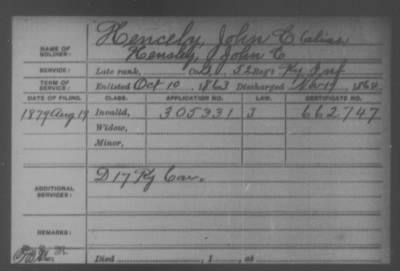 Hencely, John C (alias
NAME OF SOLDIER: Hensley, John C
SERVICE: Late rank, Co. D, 52 Reg't Ky Inf
TERM OF SERVICE: Enlisted Oct 10, 1863 Discharged 186
DATE OF FILING. CLASS. APPLICATION NO. LAW. CERTIFICATE NO.
1879 Aug 19 Invalid, 305331 J 662747
Widow,
Minor,
ADDITIONAL SERVICES: D 17 Ky Cav.
REMARKS:
Died , 1 , at